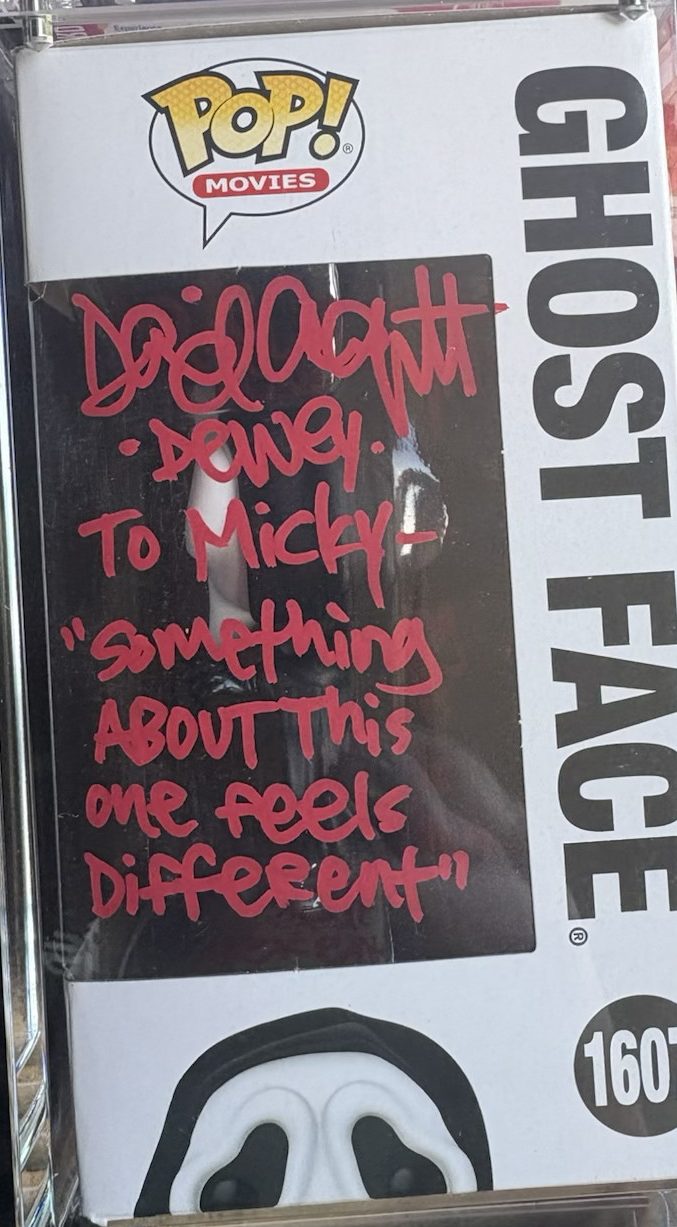 POP!®
MOVIES
GHOST FACE®
David Arquette
·Dewey·
To Micky-
"Something
ABOUT This
one feels
Different"